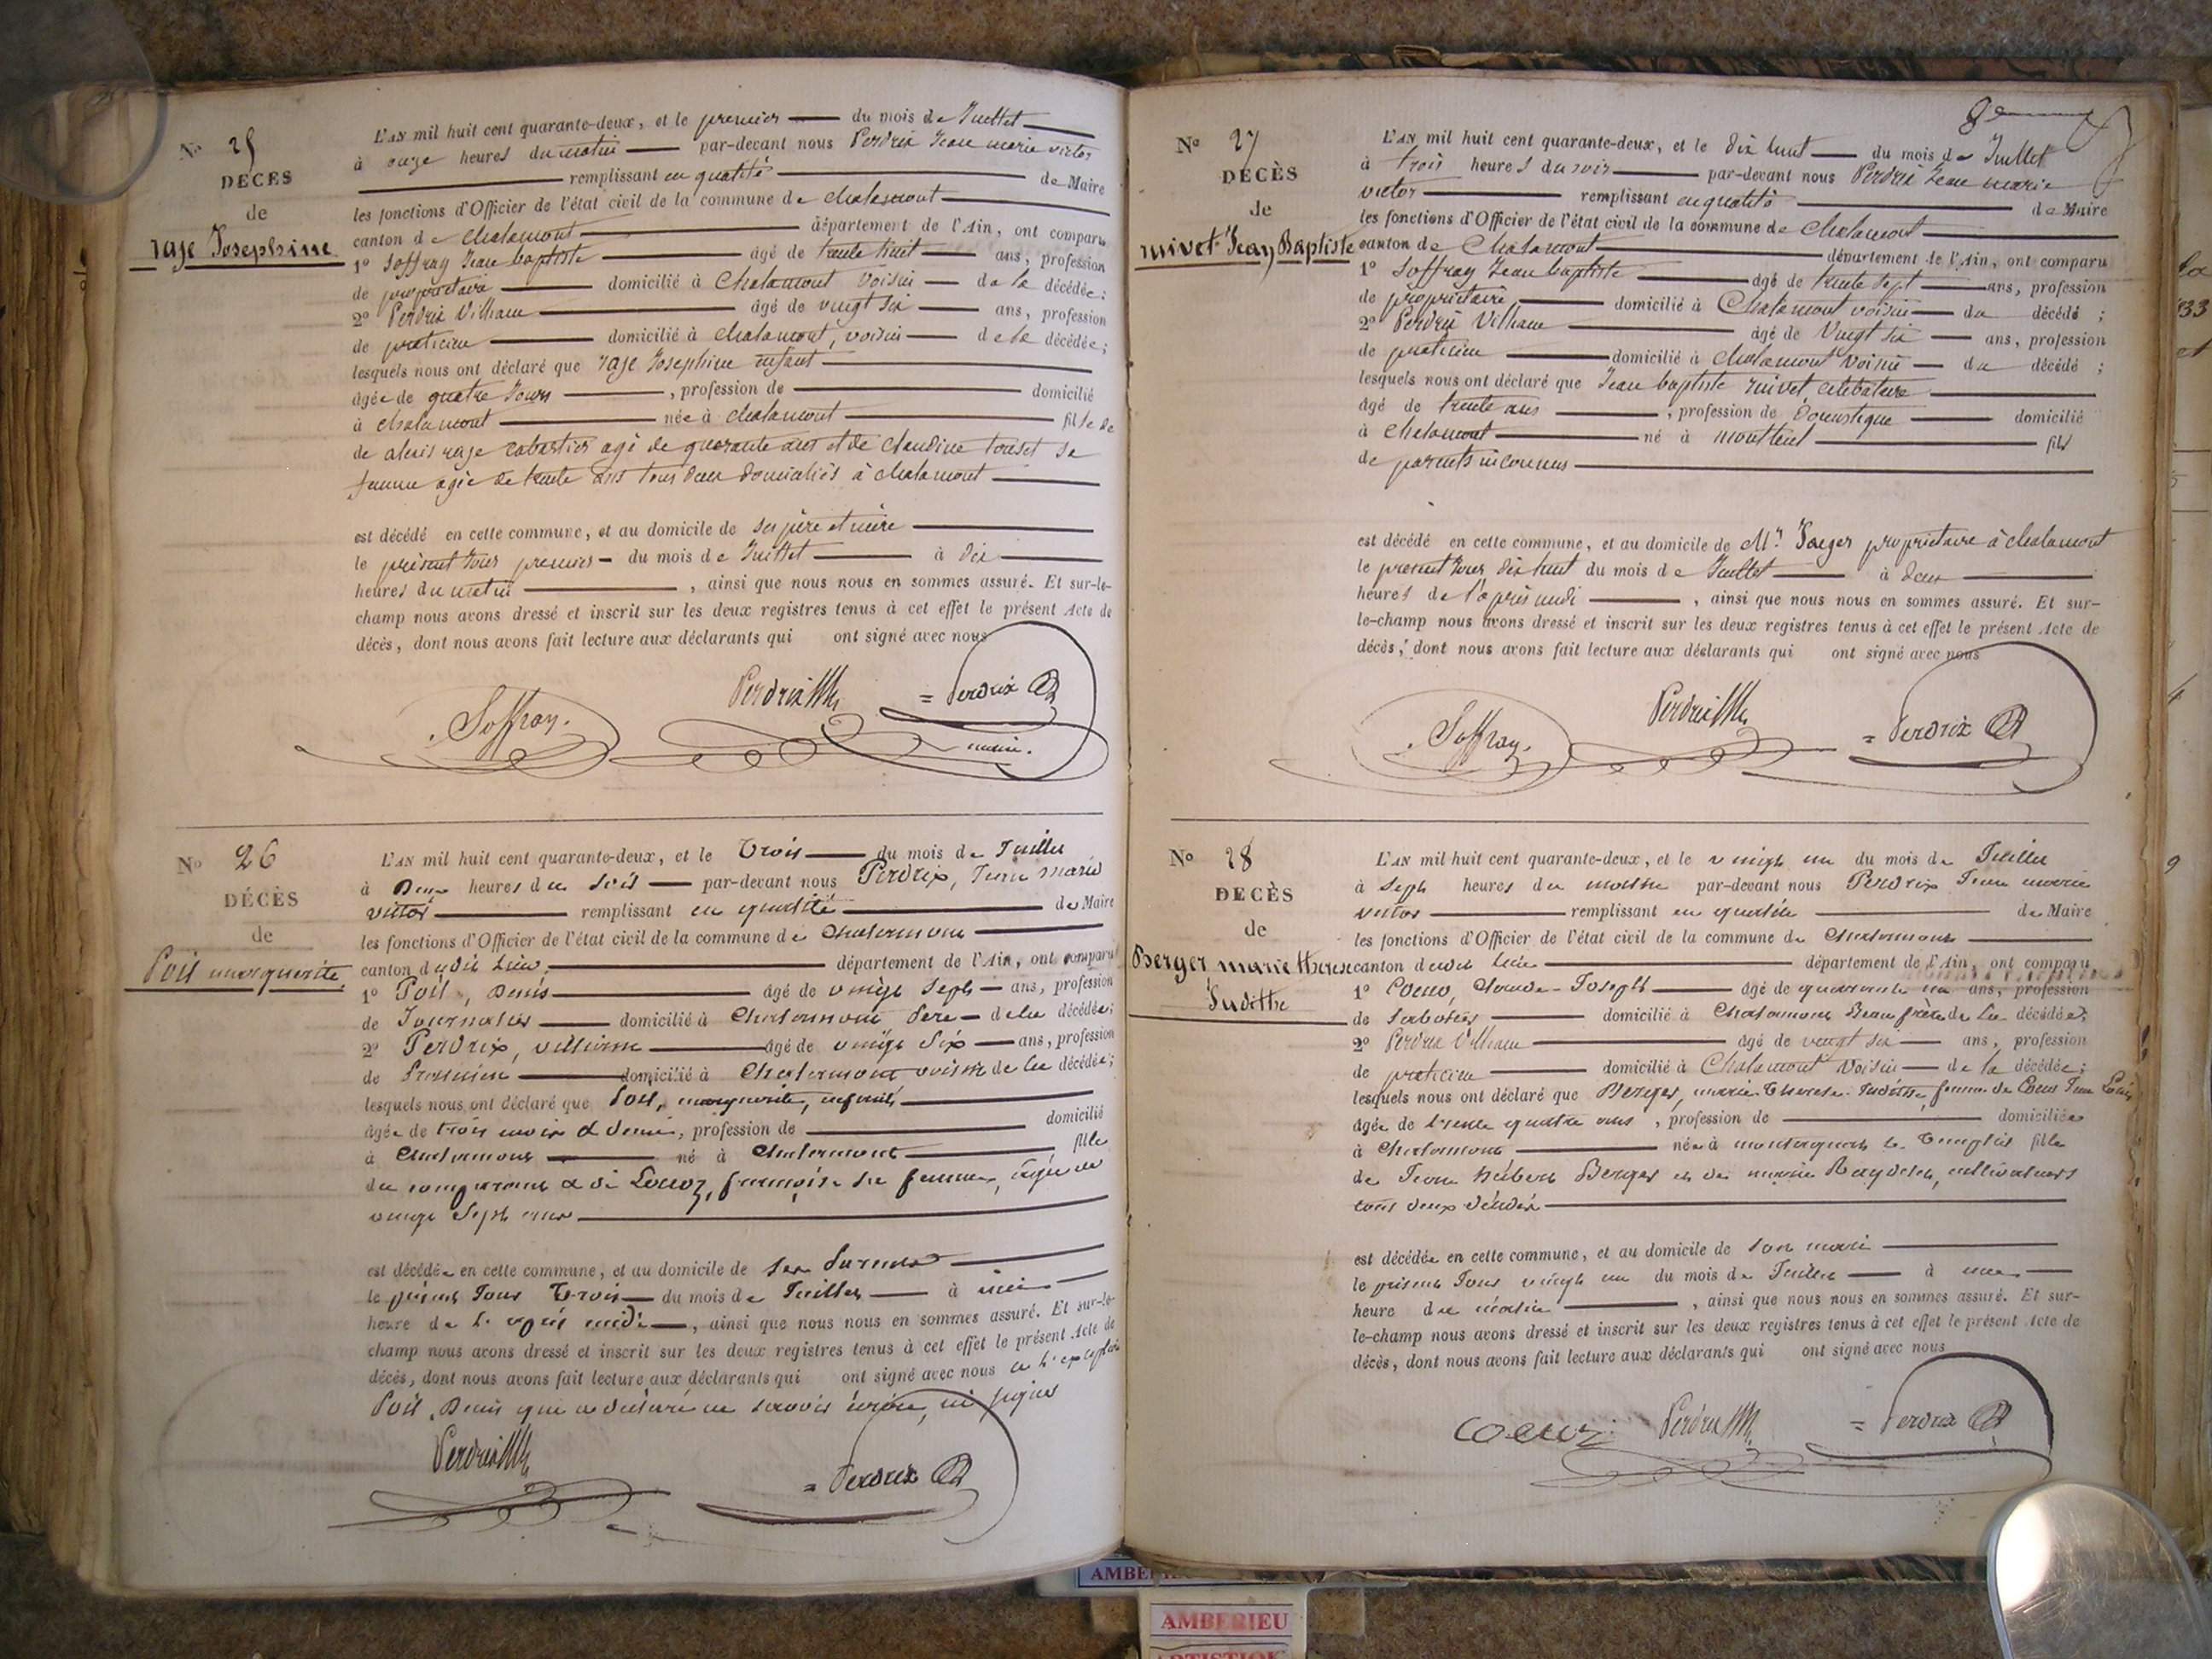 N° 25
DÉCÈS
de
rage Josephine
L'AN mil huit cent quarante-deux, et le premier du mois de Juillet
à onze heures du matin par-devant nous Perdrix Jean marie victor
remplissant en qualité de Maire
les fonctions d'Officier de l'état civil de la commune de chalamont
canton de chalamont département de l'Ain, ont comparu
1° Soffray Jean baptiste âgé de trente huit ans, profession
de propriétaire domicilié à Chalamont voisin de la décédée;
2° Perdrix Villiam âgé de vingt six ans, profession
de praticien domicilié à chalamont, voisin de la décédée;
lesquels nous ont déclaré que rage Josephine enfant
âgée de quatre Jours, profession de domicilié
à chalamont née à chalamont fille de
de alexis rage cabartier agé de quarante ans et de claudine touset sa
femme agée de trente ans tous deux domiciliés à chalamont
est décédé en cette commune, et au domicile de ses père et mère
le présent Jour premier du mois de Juillet à dix
heures du matin, ainsi que nous nous en sommes assuré. Et sur-le-
champ nous avons dressé et inscrit sur les deux registres tenus à cet effet le présent Acte de
décès, dont nous avons fait lecture aux déclarants qui ont signé avec nous
Soffray. Perdrix = Perdrix
maire.
N° 26
DÉCÈS
de
Poil marguerite
L'AN mil huit cent quarante-deux, et le Trois du mois de Juillet
à Deux heures du soir par-devant nous Perdrix, Jean marie
victor remplissant en qualité de Maire
les fonctions d'Officier de l'état civil de la commune de Chalamont
canton dudit Lieu, département de l'Ain, ont comparu
1° Poil, Denis âgé de vingt Sept ans, profession
de Journalier domicilié à Chalamont Père de la décédée;
2° Perdrix, villiam âgé de vingt Six ans, profession
de Praticien domicilié à Chalamont voisin de la décédée;
lesquels nous ont déclaré que Poil, marguerite, enfant
âgée de trois mois & demi, profession de domicilié
à Chalamont né à Chalamont fille
du comparant & de françoise sa femme, âgée de
vingt Sept ans
est décédée en cette commune, et au domicile de ses Parents
le présent Jour Trois du mois de Juillet à une
heure de l'après midi, ainsi que nous nous en sommes assuré. Et sur-le-
champ nous avons dressé et inscrit sur les deux registres tenus à cet effet le présent Acte de
décès, dont nous avons fait lecture aux déclarants qui ont signé avec nous à l'exception
Poil, Denis qui a déclaré ne savoir écrire, ni signer
Perdrix = Perdrix
8e
N° 27
DÉCÈS
de
nuivet Jean Baptiste
L'AN mil huit cent quarante-deux, et le dix huit du mois de Juillet
à trois heures du soir par-devant nous Perdrix Jean marie
victor remplissant en qualité de Maire
les fonctions d'Officier de l'état civil de la commune de Chalamont
canton de Chalamont département de l'Ain, ont comparu
1° Soffray Jean baptiste âgé de trente sept ans, profession
de propriétaire domicilié à Chalamont voisin du décédé;
2° Perdrix Villiam âgé de Vingt six ans, profession
de praticien domicilié à chalamont voisin du décédé;
lesquels nous ont déclaré que Jean baptiste nuivet, celibataire
âgé de trente ans, profession de domestique domicilié
à Chalamont né à montluel fils
de parents inconnus
est décédé en cette commune, et au domicile de Mr Jaeger propriétaire à chalamont
le présent Jour dix huit du mois de Juillet à deux
heures de l'après midi, ainsi que nous nous en sommes assuré. Et sur-
le-champ nous avons dressé et inscrit sur les deux registres tenus à cet effet le présent Acte de
décès, dont nous avons fait lecture aux déclarants qui ont signé avec nous
Soffray. Perdrix = Perdrix
N° 28
DÉCÈS
de
Berger marie therese
Judithe
L'AN mil huit cent quarante-deux, et le vingt un du mois de Juillet
à Sept heures du matin par-devant nous Perdrix Jean marie
victor remplissant en qualité de Maire
les fonctions d'Officier de l'état civil de la commune de Chalamont
canton dudit Lieu département de l'Ain, ont comparu
1° Coeur, Claude-Joseph âgé de quarante un ans, profession
de Sabotier domicilié à Chalamont Beau frère de La décédée;
2° Perdrix Villiam âgé de vingt six ans, profession
de praticien domicilié à Chalamont voisin de la décédée;
lesquels nous ont déclaré que Berger, marie-Therese-Judithe, femme de Coeur Jean Louis
âgée de trente quatre ans, profession de domiciliée
à Chalamont née à le Templier fille
de Jean hubert Berger et de marie cultivateurs
tous deux décédés
est décédée en cette commune, et au domicile de son mari
le présent Jour vingt un du mois de Juillet à une
heure du matin, ainsi que nous nous en sommes assuré. Et sur-
le-champ nous avons dressé et inscrit sur les deux registres tenus à cet effet le présent Acte de
décès, dont nous avons fait lecture aux déclarants qui ont signé avec nous
coeur Perdrix = Perdrix
AMBERIEU